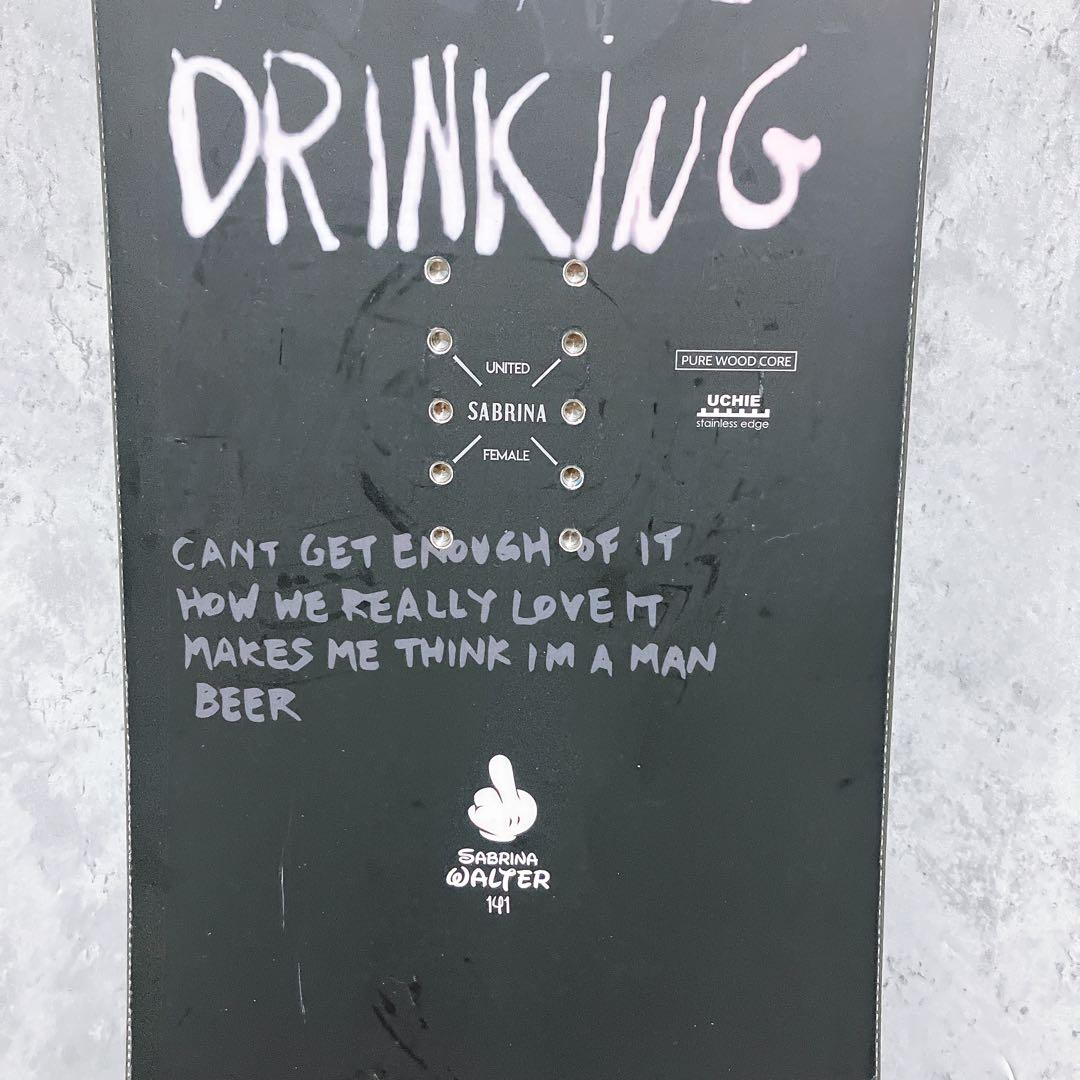 DRINKiNG
UNITED
SABRINA
FEMALE
PURE WOOD CORE
UCHIE
stainless edge
CANT GET ENOUGH OF IT
HOW WE REALLY LOVE IT
MAKES ME THINK IM A MAN
BEER
SABRINA
WALTER
141